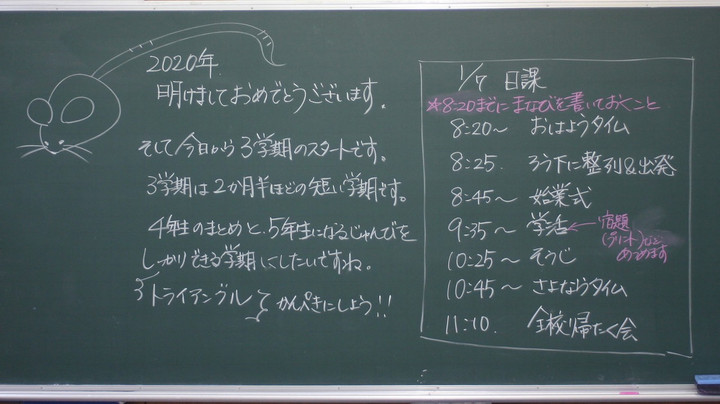 2020年
明けましておめでとうございます。
そして今日から3学期のスタートです。
3学期は2か月半ほどの短い学期です。
4年生のまとめと、5年生になるじゅんびを
しっかりできる学期にしたいですね。
トライアングル かんぺきにしよう!!
1/7 日課
*8:20までにまなびを書いておくこと
8:20～ おはようタイム
8:25. ろう下に整列&出発
8:45～ 始業式
9:35～ 学活←宿題
(プリント)
あつめます
10:25～ そうじ
10:45～ さよならタイム
11:10. 全校帰たく会